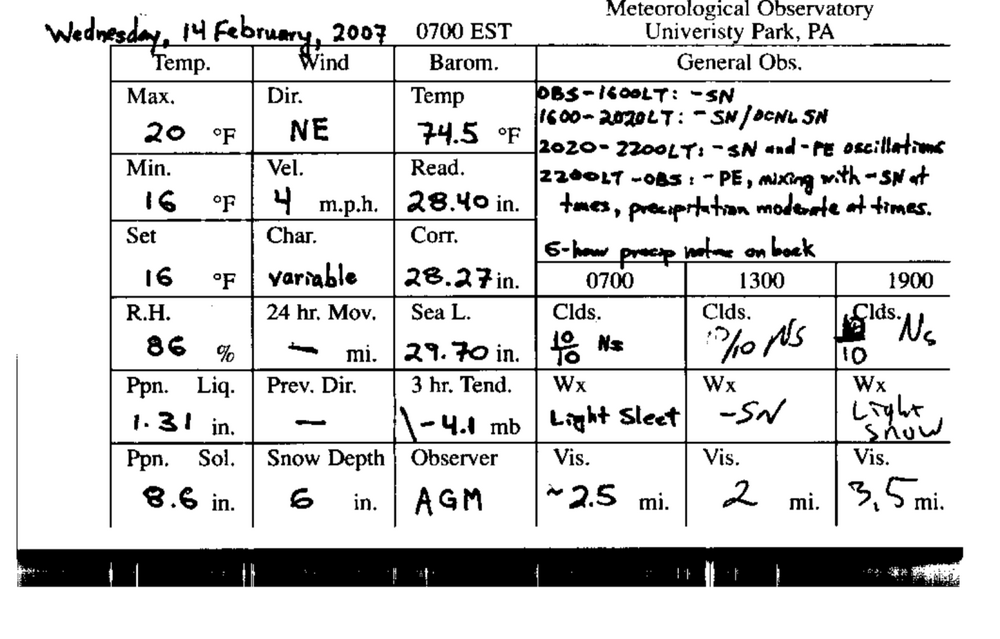 Meteorological Observatory
Wednesday, 14 February, 2007 0700 EST Univeristy Park, PA
Temp. Wind Barom. General Obs.
Max. Dir. Temp
20 °F NE 74.5 °F
OBS-1600LT: -SN
1600-2020LT: -SN/OCNL SN
2020-2200LT: -SN and -PE oscillations
2200LT-OBS: -PE, mixing with -SN at
times, precipitation moderate at times.
6-hour precip notes on back
Min. Vel. Read.
16 °F 4 m.p.h. 28.40 in.
Set Char. Corr.
16 °F variable 28.27 in.
0700 1300 1900
R.H. 24 hr. Mov. Sea L. Clds. Clds. Clds.
86 % — mi. 29.70 in. 10/10 Ns 10/10 Ns 10 Ns
Ppn. Liq. Prev. Dir. 3 hr. Tend. Wx Wx Wx
1.31 in. — \-4.1 mb Light Sleet -SN Light Snow
Ppn. Sol. Snow Depth Observer Vis. Vis. Vis.
8.6 in. 6 in. AGM ~2.5 mi. 2 mi. 3.5 mi.